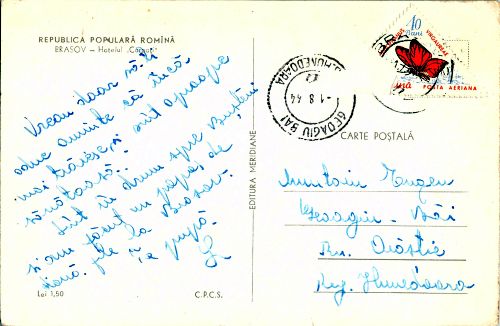 REPUBLICA POPULARĂ ROMÎNĂ
BRAȘOV – Hotelul „Carpați”
Vreau doar să-ți
aduc aminte că încă
mai trăiesc și sînt aproape
sănătoasă.
Sînt în drum spre Bușteni
și am făcut un popas de
două zile la Brașov.
Te pupă
Lei 1,50
C.P.C.S.
EDITURA MERIDIANE
CARTE POȘTALĂ
Geoagiu - Băi
Rn. Orăștie
Reg. Hunedoara
GEOAGIU BĂI
HUNEDOARA
-1.8.44
40
Bani
POSTA AERIANA